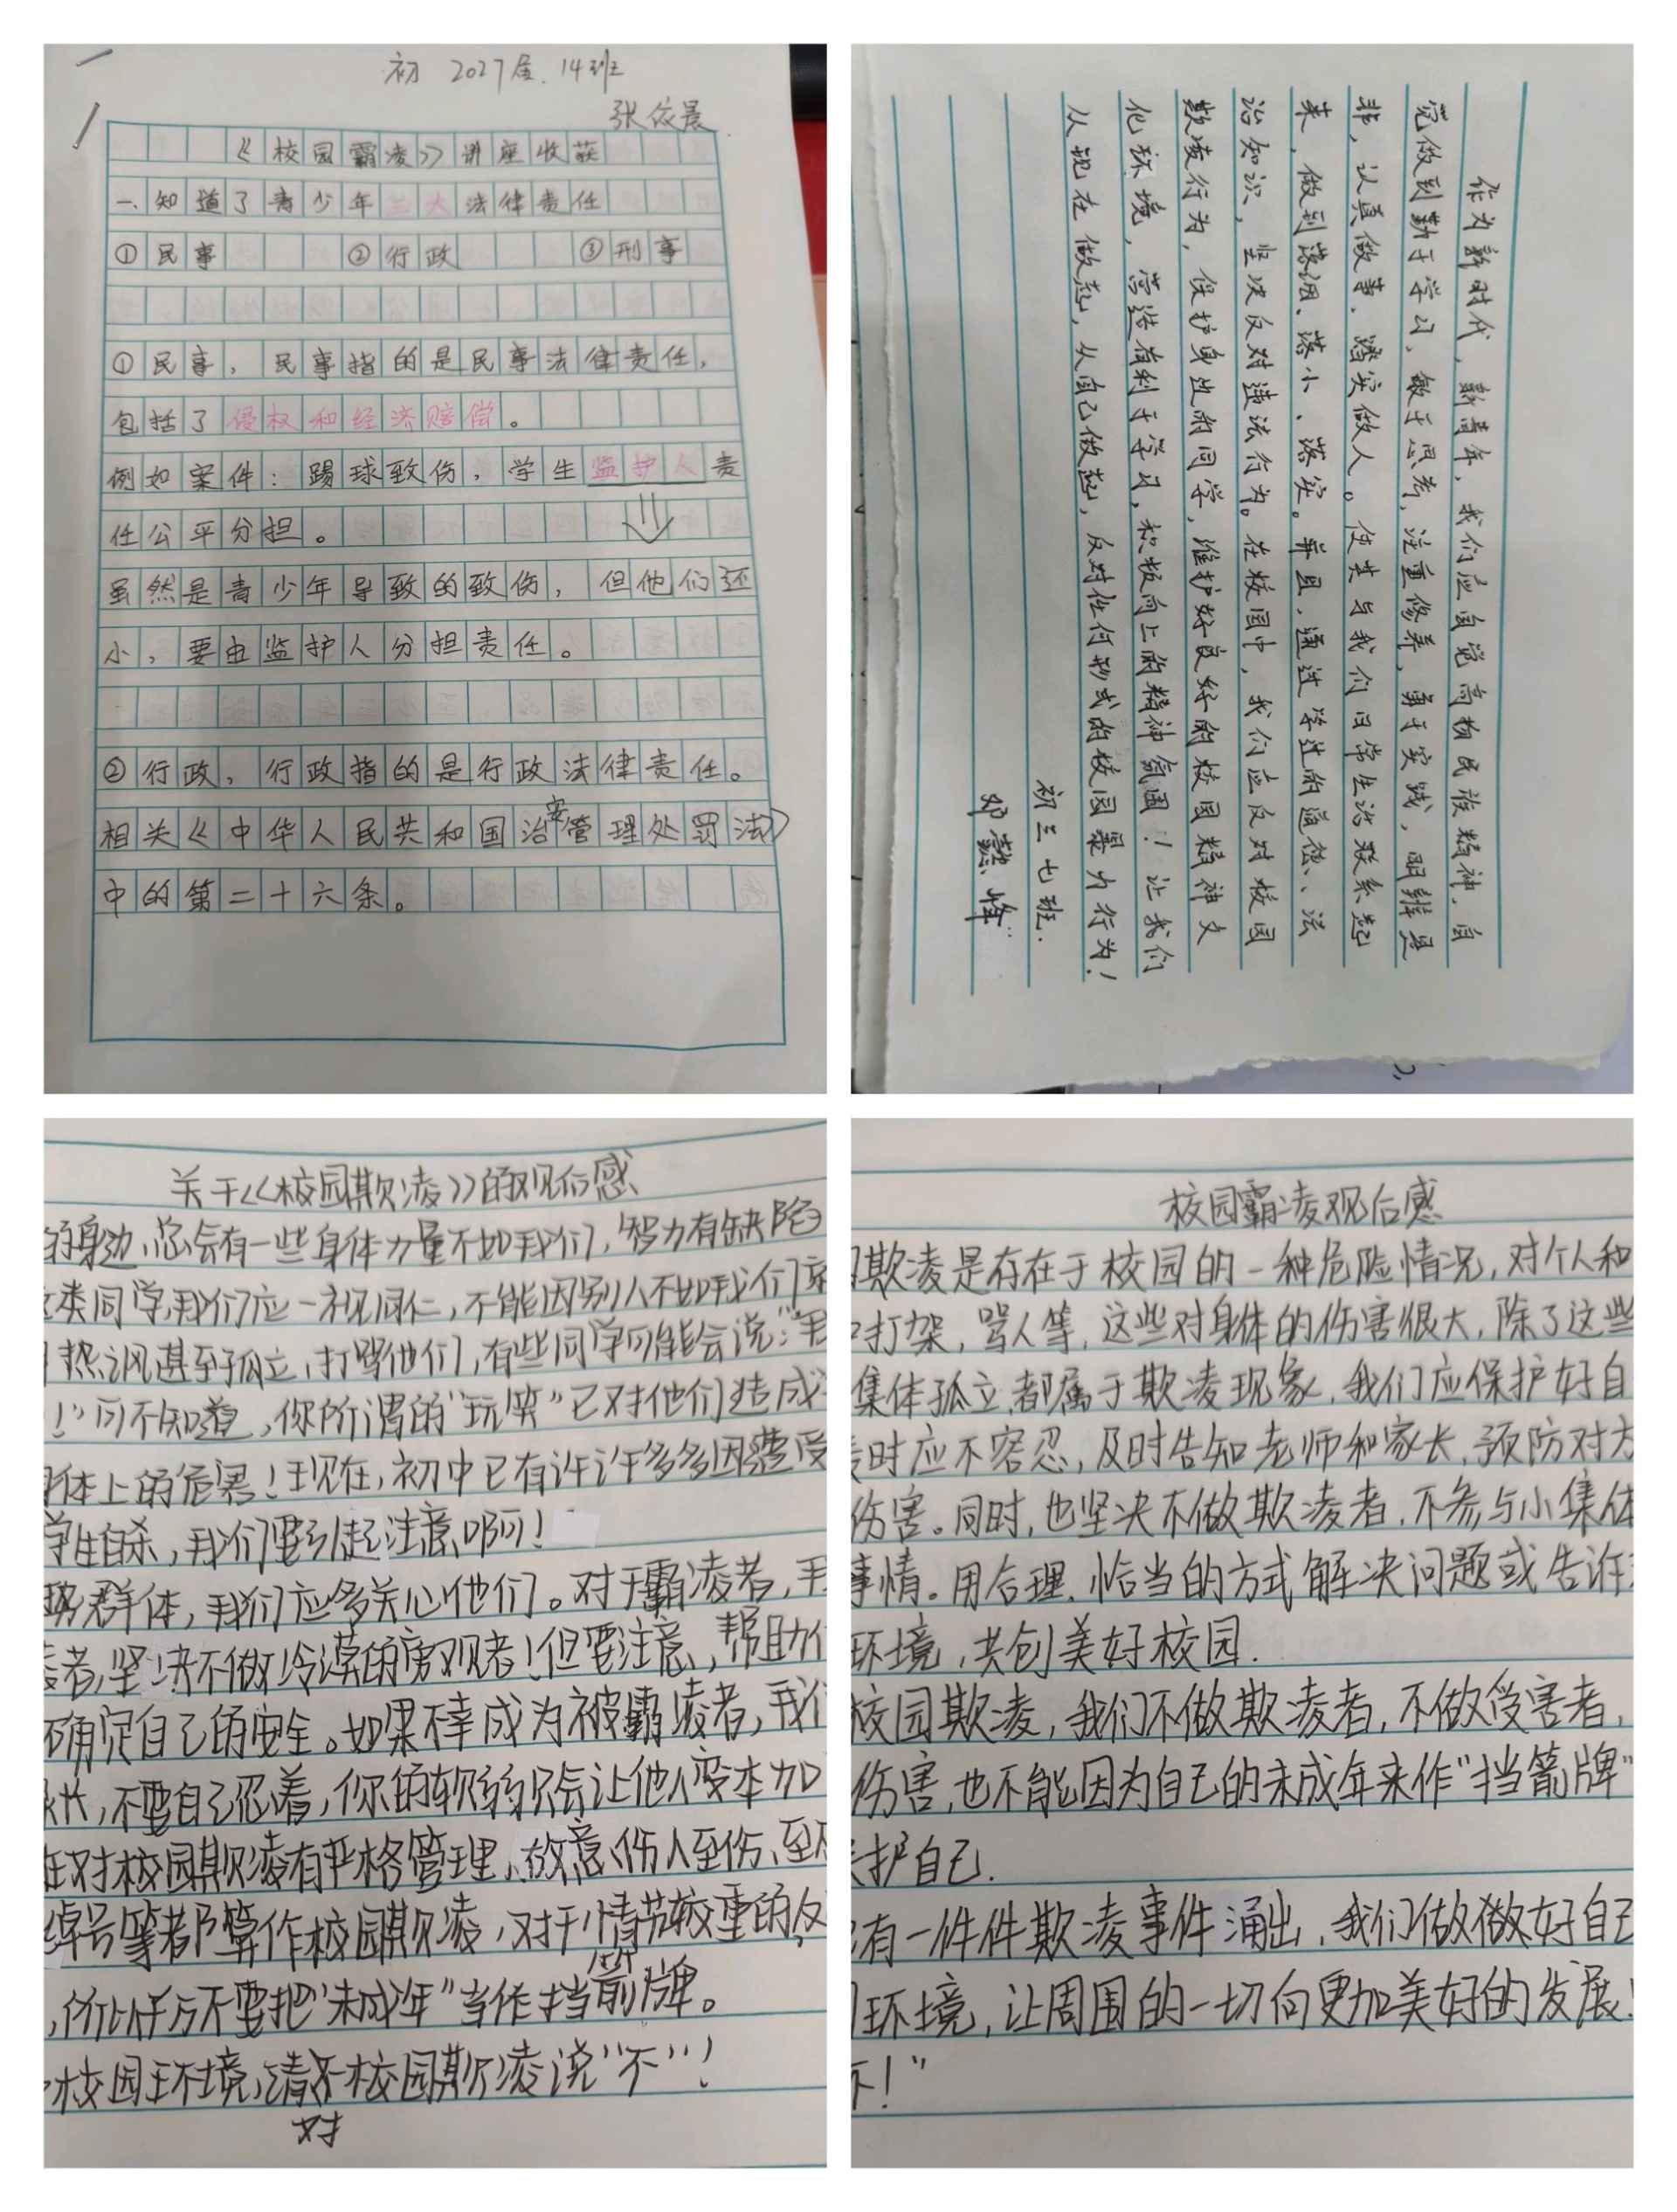 初 2027届.14班
张依晨
《校园霸凌》讲座收获
一、知道了青少年三大法律责任
①民事 ②行政 ③刑事
①民事，民事指的是民事法律责任，
包括了侵权和经济赔偿。
例如案件：踢球致伤，学生监护人责
任公平分担。
虽然是青少年导致的致伤，但他们还
小，要由监护人分担责任。
②行政，行政指的是行政法律责任。
相关《中华人民共和国治安管理处罚法》
中的第二十六条。
作为新时代，新青年，我们应自觉高扬民族精神，自
觉做到勤于学习，敏于思考，注重修养，勇于实践，明辨是
非，认真做事，踏实做人。使其与我们日常生活联系起
来，做到落细、落小、落实。并且，通过学过的道德、法
治知识，坚决反对违法行为。在校园中，我们应反对校园
欺凌行为，保护身边的同学，维护好良好的校园精神文
化环境，营造有利于学习，积极向上的精神氛围！让我们
从现在做起，从自己做起，反对任何形式的校园暴力行为！
初三七班.
邓懿烽
关于《校园欺凌》的观后感
的身边，总会有一些身体力量不如我们，智力有缺陷
类同学，我们应一视同仁，不能因别人不如我们
热讽甚至孤立，打骂他们，有些同学可能会说："我
！"可不知道，你所谓的"玩笑"已对他们造成
体上的危害！现在，初中已有许许多多因遭受
学生自杀，我们要引起注意啊！
群体，我们应多关心他们。对于霸凌者，我
者，坚决不做冷漠的旁观者！但要注意，帮助他
确定自己的安全。如果不幸成为被霸凌者，我们
长，不要自己忍着，你的软弱只会让他人变本加
在对校园欺凌有严格管理，故意伤人至伤、至
绰号等都算作校园欺凌，对于情节较重的，
，你们千万不要把"未成年"当作挡箭牌。
校园环境，请对校园欺凌说"不"！
校园霸凌观后感
欺凌是存在于校园的一种危险情况，对个人和
打架，骂人等，这些对身体的伤害很大，除了这些
集体孤立，都属于欺凌现象，我们应保护好自
时应不容忍，及时告知老师和家长，预防对方
伤害。同时，也坚决不做欺凌者，不参与小集体
事情。用合理、恰当的方式解决问题或告诉
环境，共创美好校园.
校园欺凌，我们不做欺凌者，不做受害者，
伤害，也不能因为自己的未成年来作"挡箭牌"
护自己.
有一件件欺凌事件涌出，我们做做好自己
环境，让周围的一切向更加美好的发展！
不！"